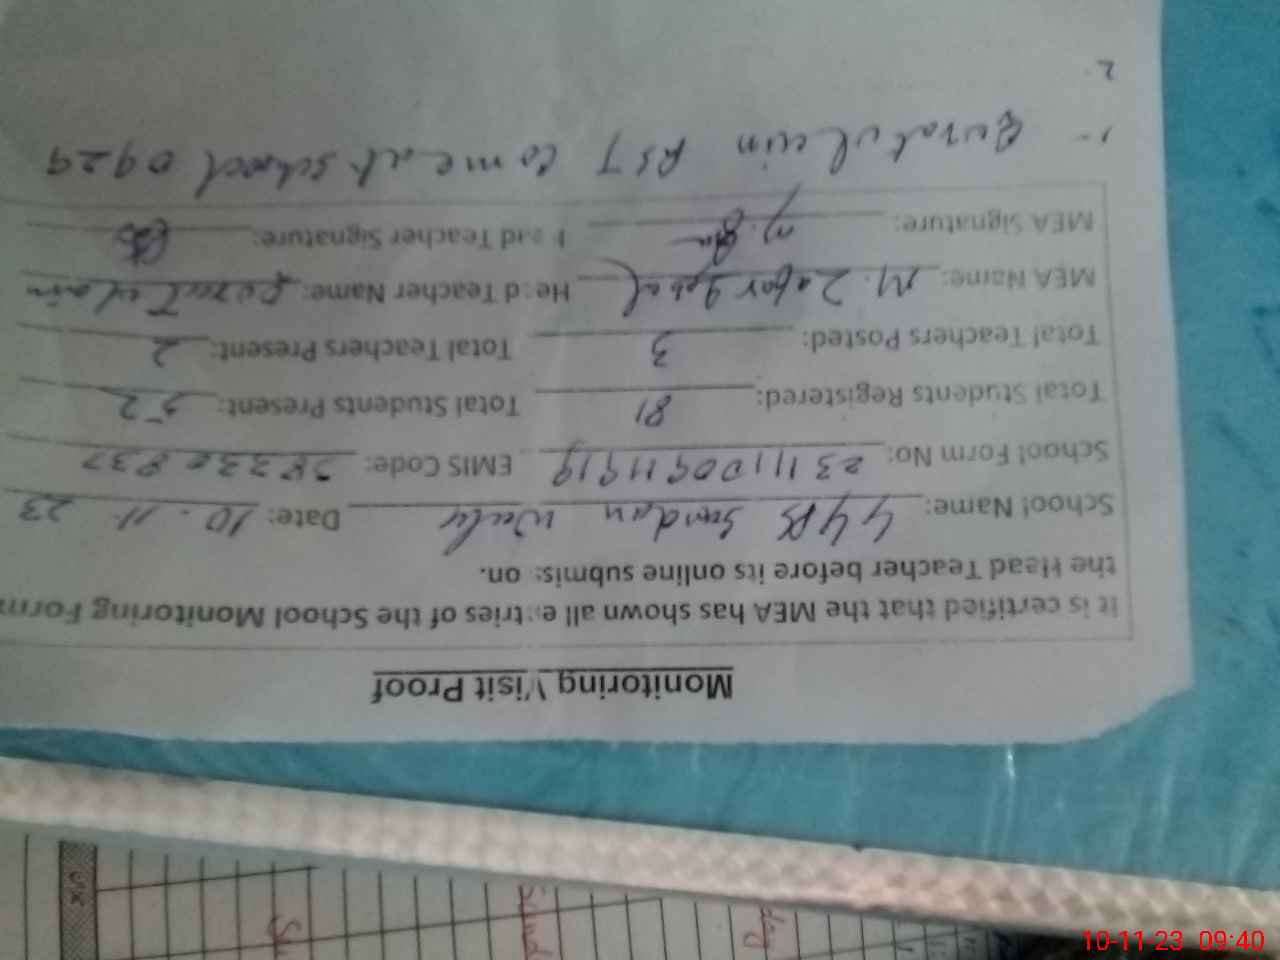 Monitoring Visit Proof
It is certified that the MEA has shown all entries of the School Monitoring Form
the Head Teacher before its online submission.
School Name: GGPS Sundan Wali Date: 10-11-23
School Form No: 231110091919 EMIS Code:
Total Students Registered: 81 Total Students Present: 52
Total Teachers Posted: 3 Total Teachers Present: 2
MEA Name: M. Zafar Iqbal Head Teacher Name: Qurat ul ain
MEA Signature: Head Teacher Signature:
1- Qurat ul ain PST Come at school 0929
2.
10-11-23 09:40